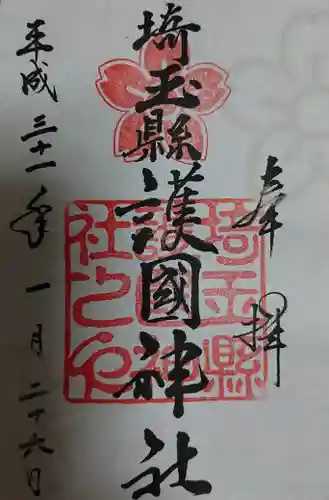 奉拝
埼玉縣護國神社
平成三十一年一月二十六日
埼玉縣
護國神
社之印